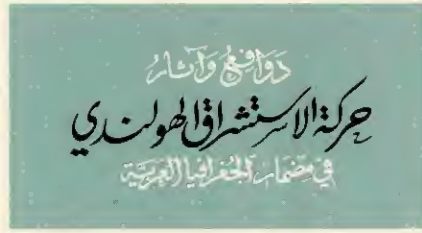 دَوَافِعُ وَآثَارُ
حركة الاستشراق الهولندي
في مِضْمَارِ الجُغْرَافِيَا العَرَبِيَّة